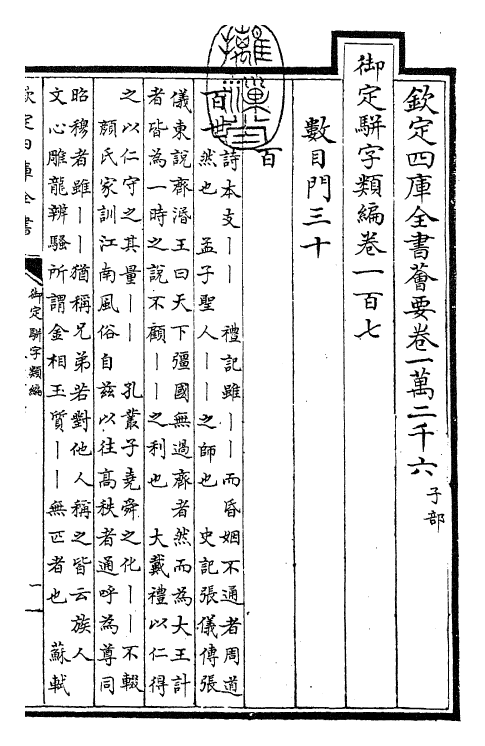 欽定四庫全書薈要卷一萬二千六 子部
御定駢字類編卷一百七
數目門三十
百
百世 詩本支丨丨 禮記雖丨丨而昏姻不通者周道
然也 孟子聖人丨丨之師也 史記張儀傳張
儀東説齊湣王曰天下彊國無過齊者然而為大王計
者皆為一時之説不顧丨丨之利也 大戴禮以仁得
之以仁守之其量丨丨 孔叢子堯舜之化丨丨不輟
顔氏家訓江南風俗自兹以往髙秩者通呼為尊同
昭穆者雖丨丨猶稱兄弟若對他人稱之皆云族人
文心雕龍辨騷所謂金相玉質丨丨無匹者也 蘇軾
欽定四庫全書
御定駢字類編
一